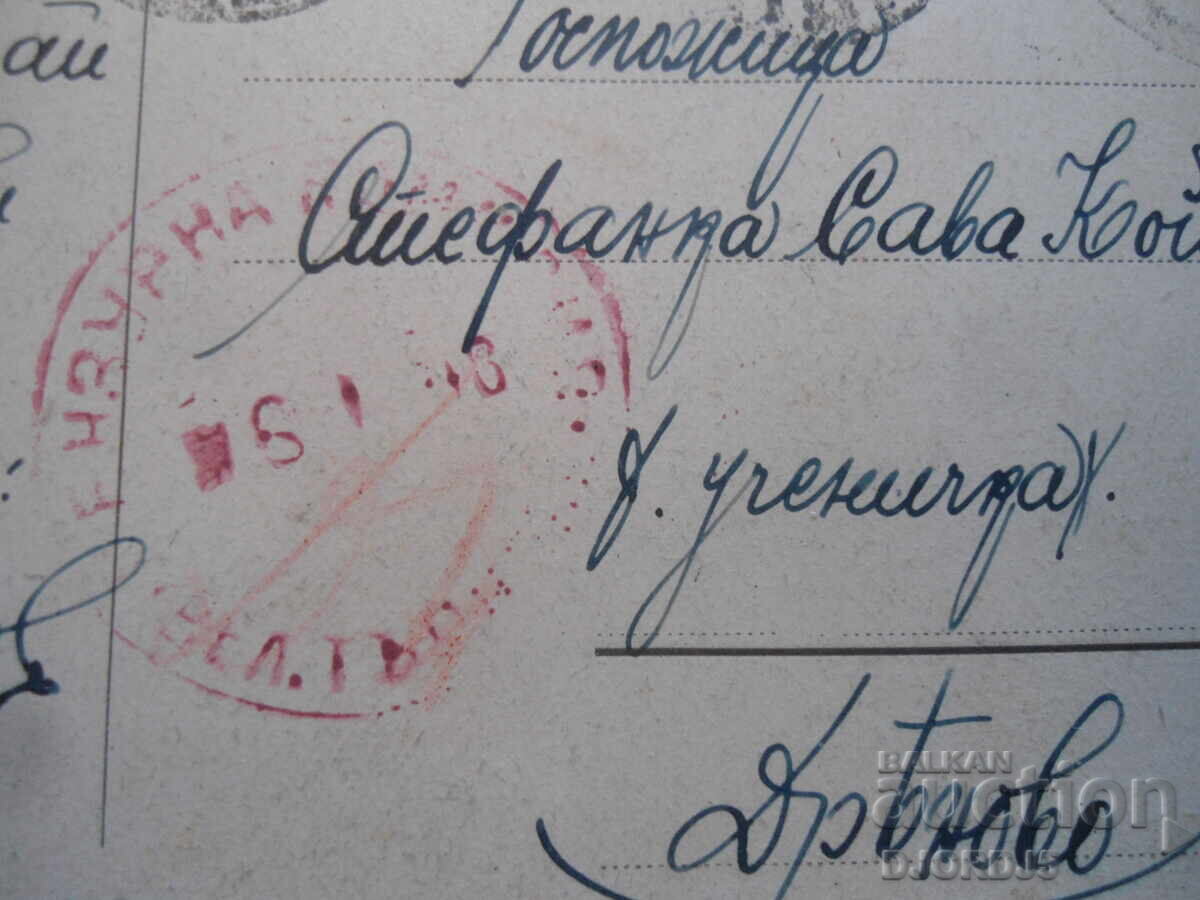 Госпожица
Стефанка Сава Кой
/. ученичка/.
Дрѣново
НЗУРНА
6 I
В.ТЪР
BALKAN
auction
DJORDJ5